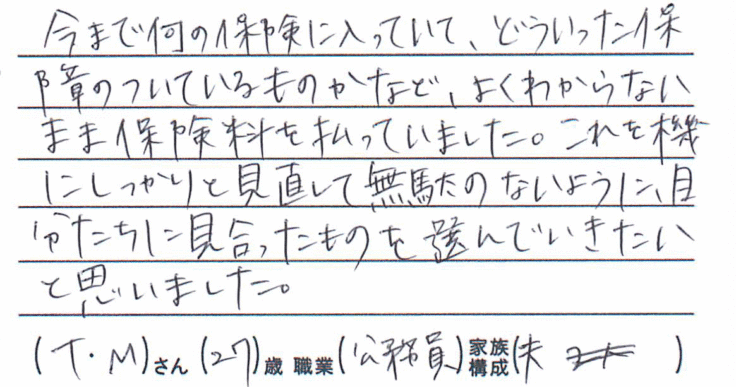 今まで何の保険に入っていて、どういった保
障のついているものかなど、よくわからない
まま保険料を払っていました。これを機
にしっかりと見直して無駄のないように、自
分たちに見合ったものを選んでいきたい
と思いました。
(T・M)さん(27)歳 職業(公務員)家族構成(夫 )